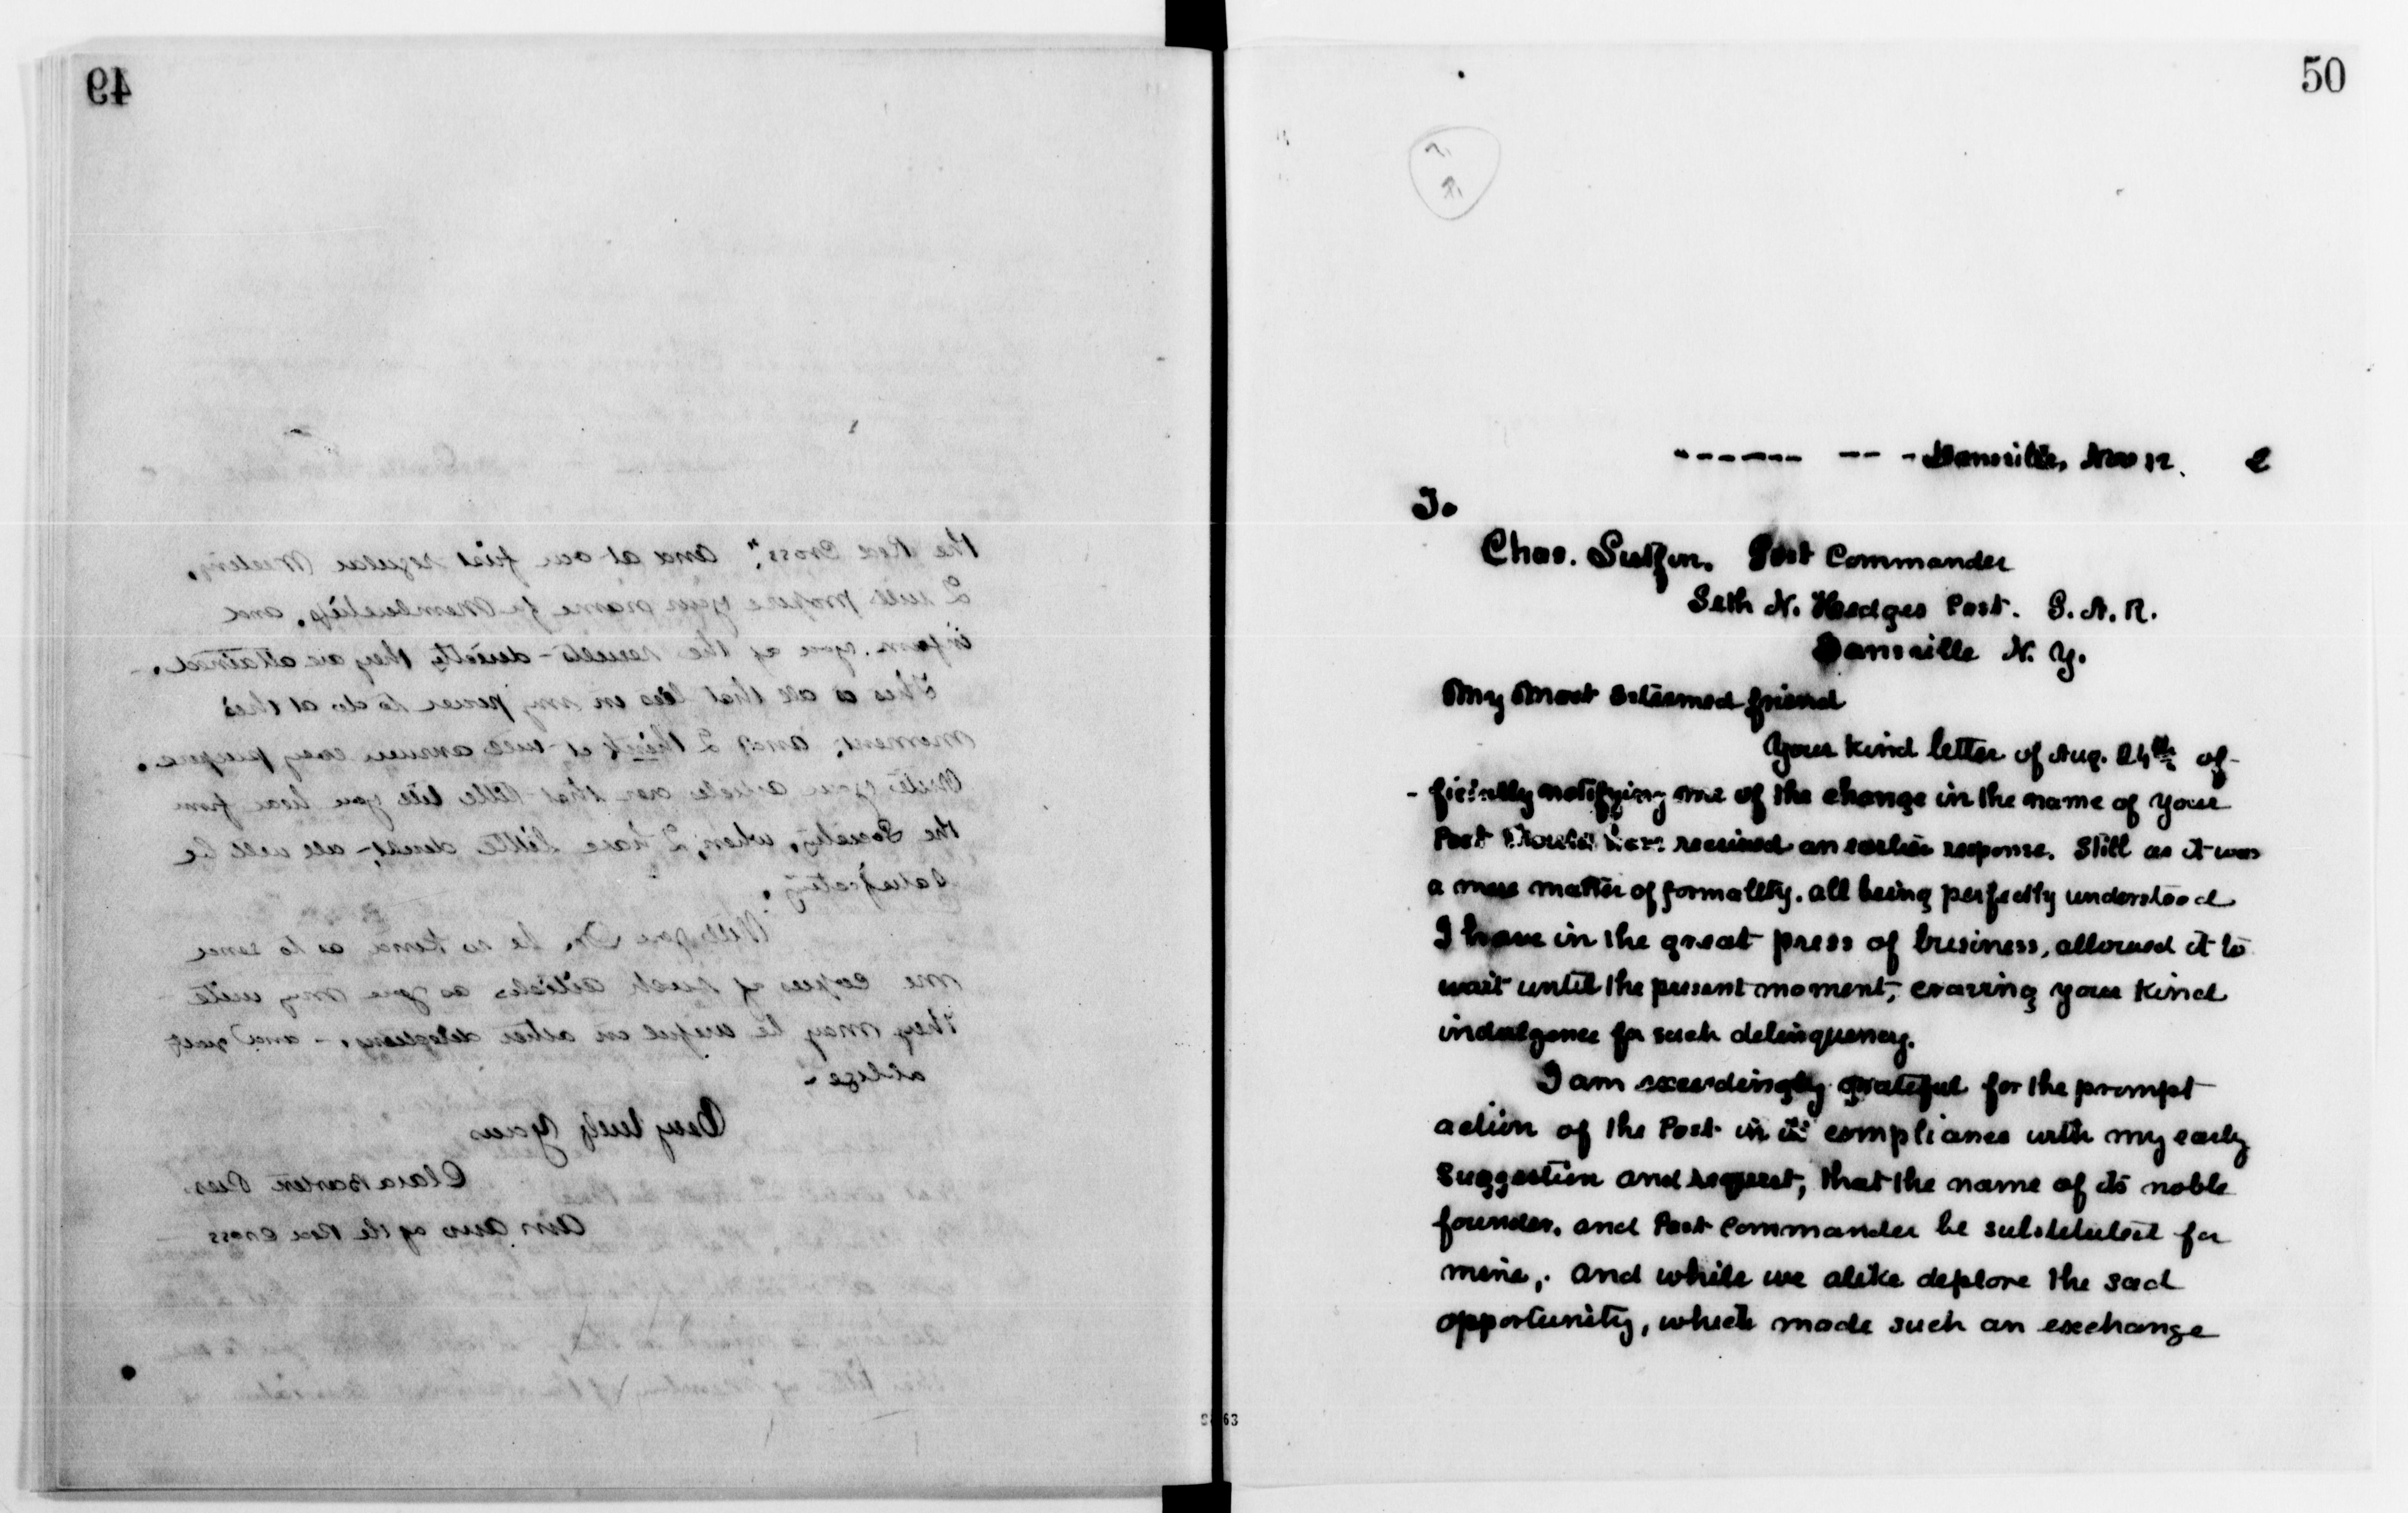 49
the Red Cross", and at our first regular meeting,
I will propose your name for Membership, and
inform you of the results - directly they are attained. -
This is all that lies in my power to do at this
moment; and I think it will answer every purpose.
Write your article over that little title you hear from
the Society, when, I have little doubt, - all will be
satisfactory.
Will you Dr. be so kind as to send
me copies of such articles as you may write -
They may be useful in other directions, - and
oblige -
Very truly Yours
Clara Barton Pres
Am Asso of the Red Cross
50
Dansville, Nov 12.
To
Chas. Sutfin. Post Commander
Seth N. Hedges Post. G. A. R.
Dansville N. Y.
My Most esteemed friend
Your kind letter of Aug. 24th of-
- ficially notifying me of the change in the name of your
Post should have received an earlier response. Still as it was
a mere matter of formality. all being perfectly understood
I have in the great press of business, allowed it to
wait until the present moment, craving your kind
indulgence for such delinquency.
I am exceedingly grateful for the prompt
action of the Post in its compliance with my early
suggestion and request, that the name of its noble
founder, and Post Commander be substituted for
mine,. and while we alike deplore the sad
opportunity, which made such an exchange
9863